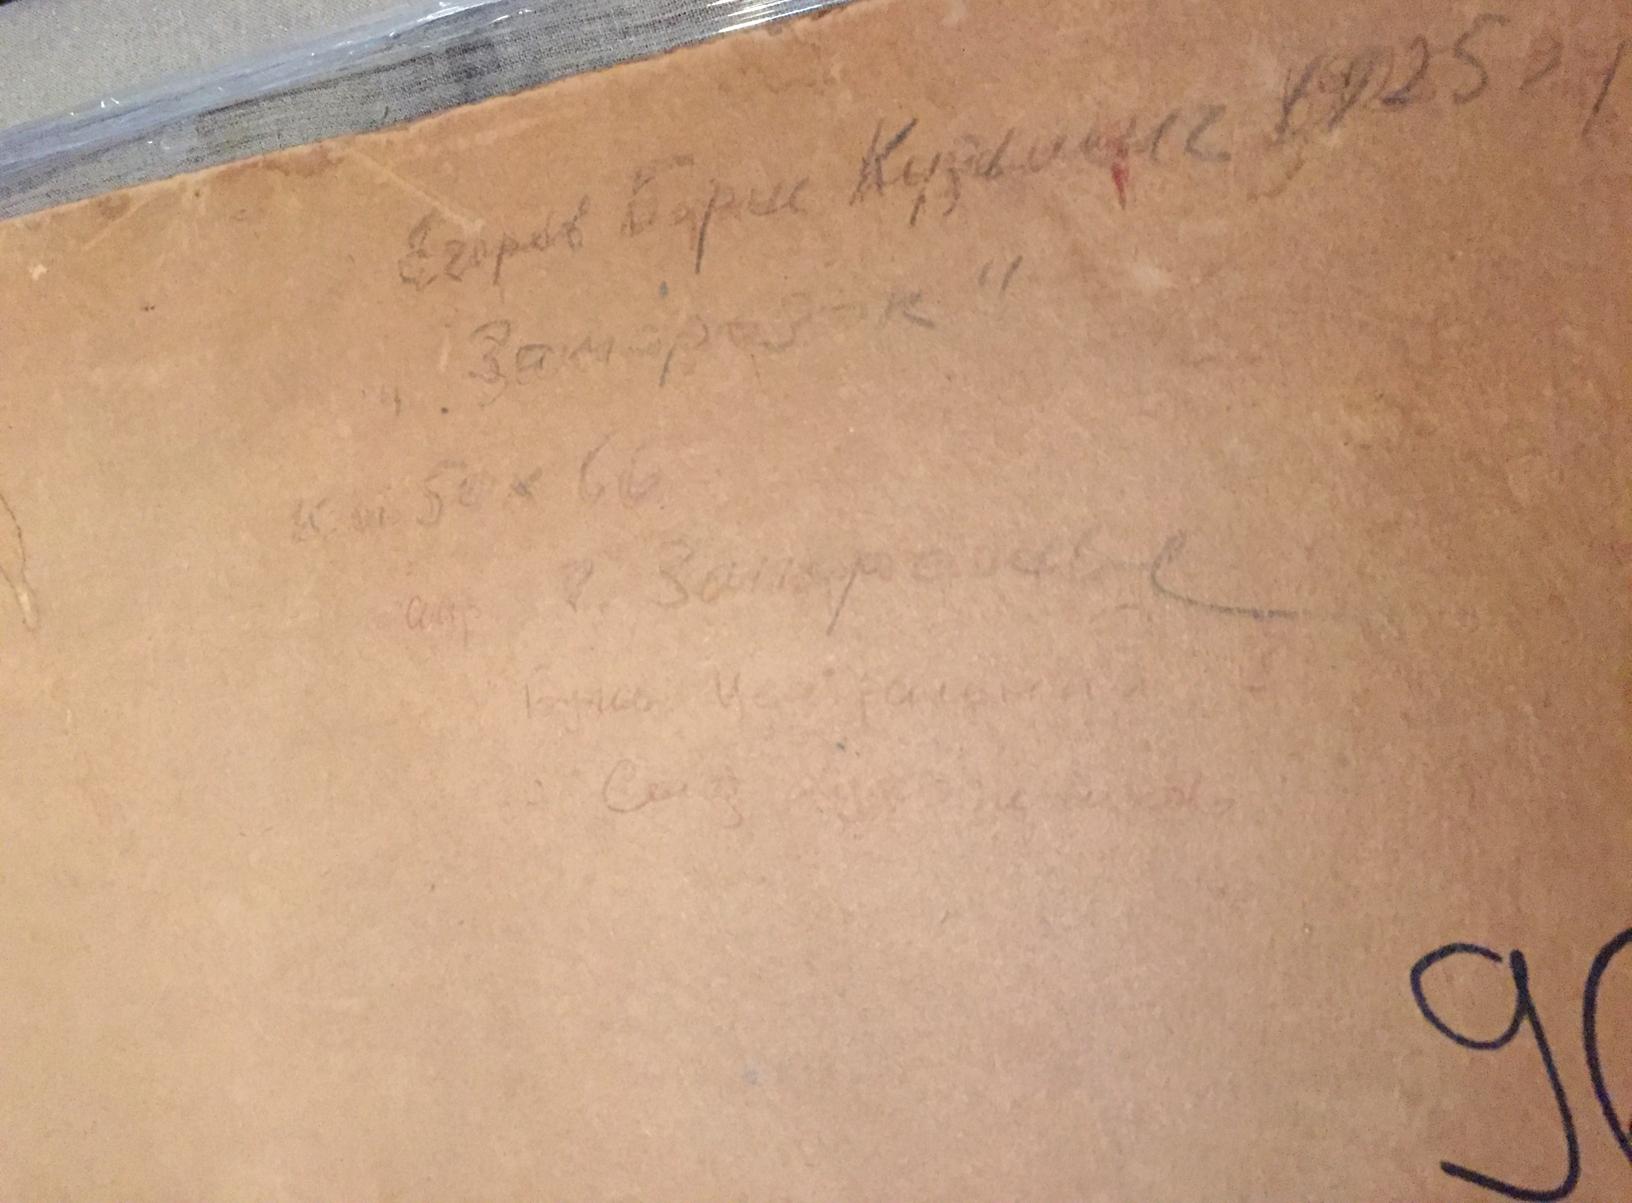 Егоров Борис Кузьмич 1925 г
"Заморозок"
к. м 50 х 66
г. Запорожье
Союз художников
9